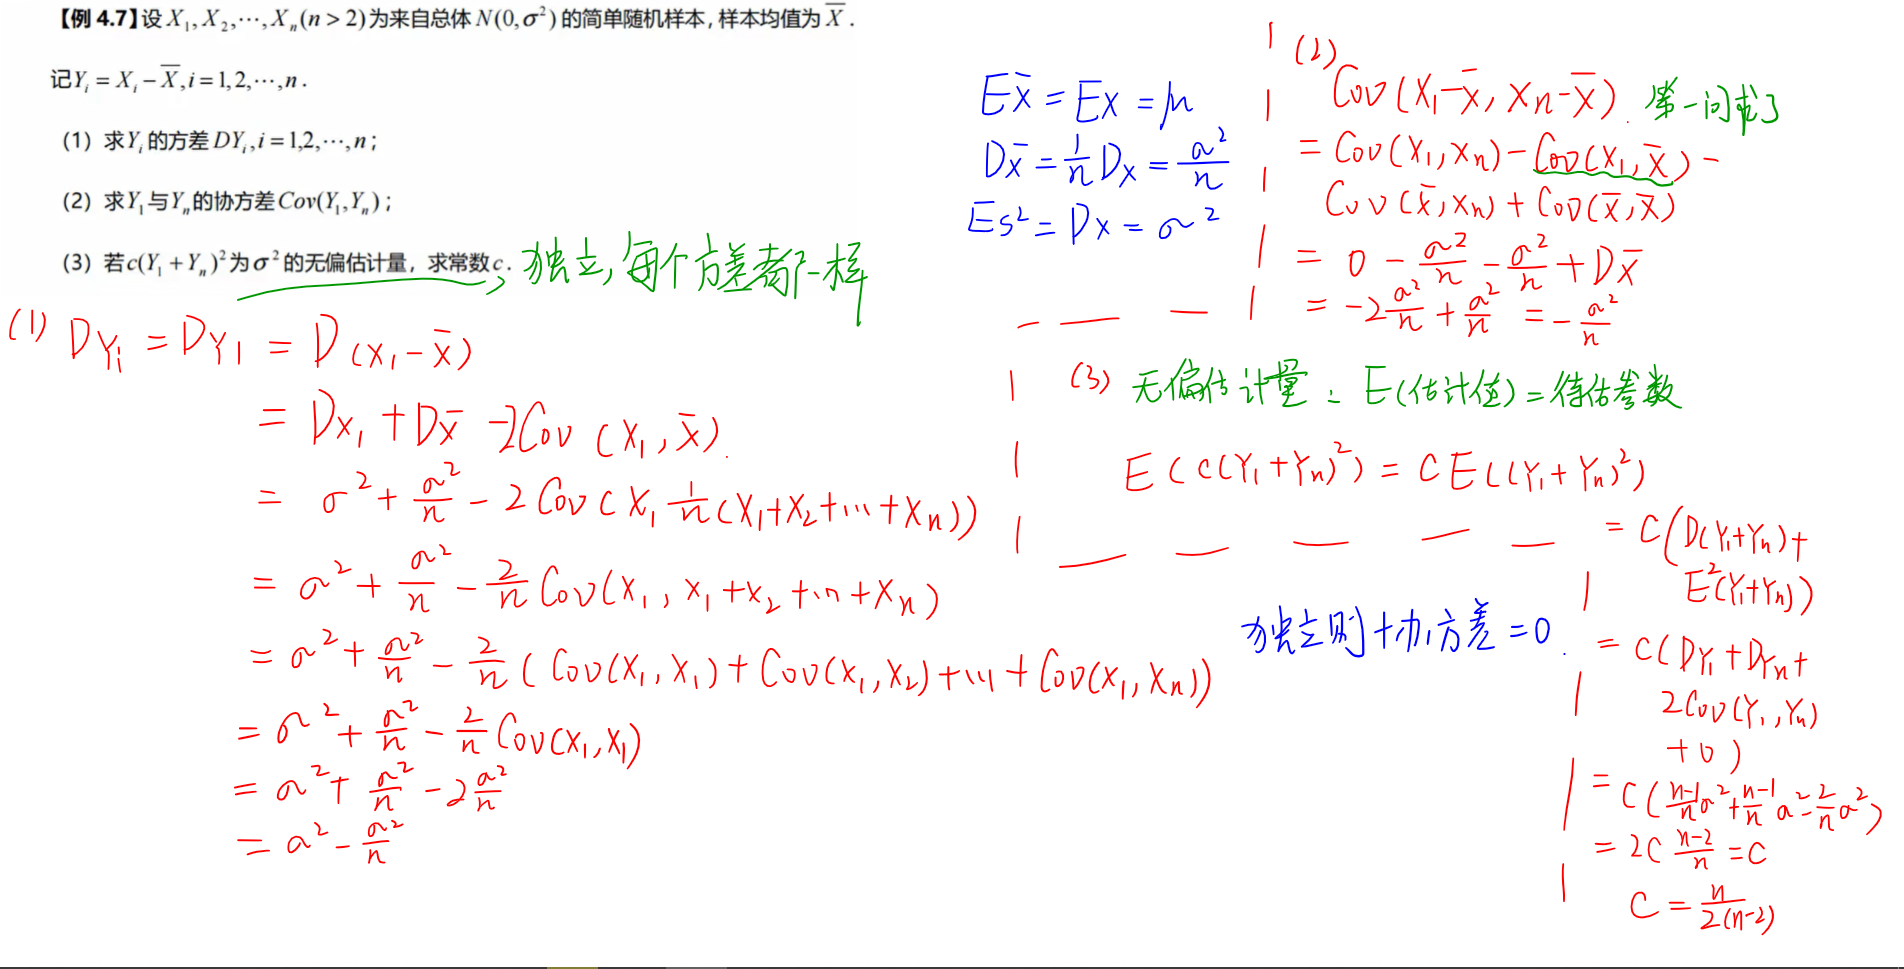 【例 4.7】设 X₁, X₂, ⋯, Xₙ (n > 2) 为来自总体 N(0, σ²) 的简单随机样本, 样本均值为 X̄ .
记 Yᵢ = Xᵢ − X̄, i = 1, 2, ⋯, n .
(1) 求 Yᵢ 的方差 DYᵢ, i = 1,2, ⋯, n ;
(2) 求 Y₁ 与 Yₙ 的协方差 Cov(Y₁, Yₙ) ;
(3) 若 c(Y₁ + Yₙ)² 为 σ² 的无偏估计量，求常数 c .
独立, 每个方差都一样
(1) DYᵢ = DY₁ = D(X₁ − X̄)
= DX₁ + DX̄ − 2Cov(X₁, X̄).
= σ² + σ²/n − 2Cov(X₁ 1/n(X₁+X₂+⋯+Xₙ))
= σ² + σ²/n − 2/n Cov(X₁, X₁+X₂+⋯+Xₙ)
= σ² + σ²/n − 2/n (Cov(X₁, X₁) + Cov(X₁, X₂) + ⋯ + Cov(X₁, Xₙ))
= σ² + σ²/n − 2/n Cov(X₁, X₁)
= σ² + σ²/n − 2 σ²/n
= σ² − σ²/n
EX̄ = EX = μ
DX̄ = 1/n DX = σ²/n
ES² = DX = σ²
(2)
Cov(X₁−X̄, Xₙ−X̄). 第一问求了
= Cov(X₁, Xₙ) − Cov(X₁, X̄) −
Cov(X̄, Xₙ) + Cov(X̄, X̄)
= 0 − σ²/n − σ²/n + DX̄
= −2 σ²/n + σ²/n = − σ²/n
(3) 无偏估计量: E(估计值) = 待估参数
E(c(Y₁+Yₙ)²) = CE((Y₁+Yₙ)²)
= C(D(Y₁+Yₙ) +
E²(Y₁+Yₙ))
独立则协方差 = 0.
= C(DY₁ + DYₙ +
2Cov(Y₁, Yₙ)
+ 0)
= C((n−1)/n σ² + (n−1)/n σ² − 2/n σ²)
= 2C (n−2)/n = C
C = n/2(n−2)